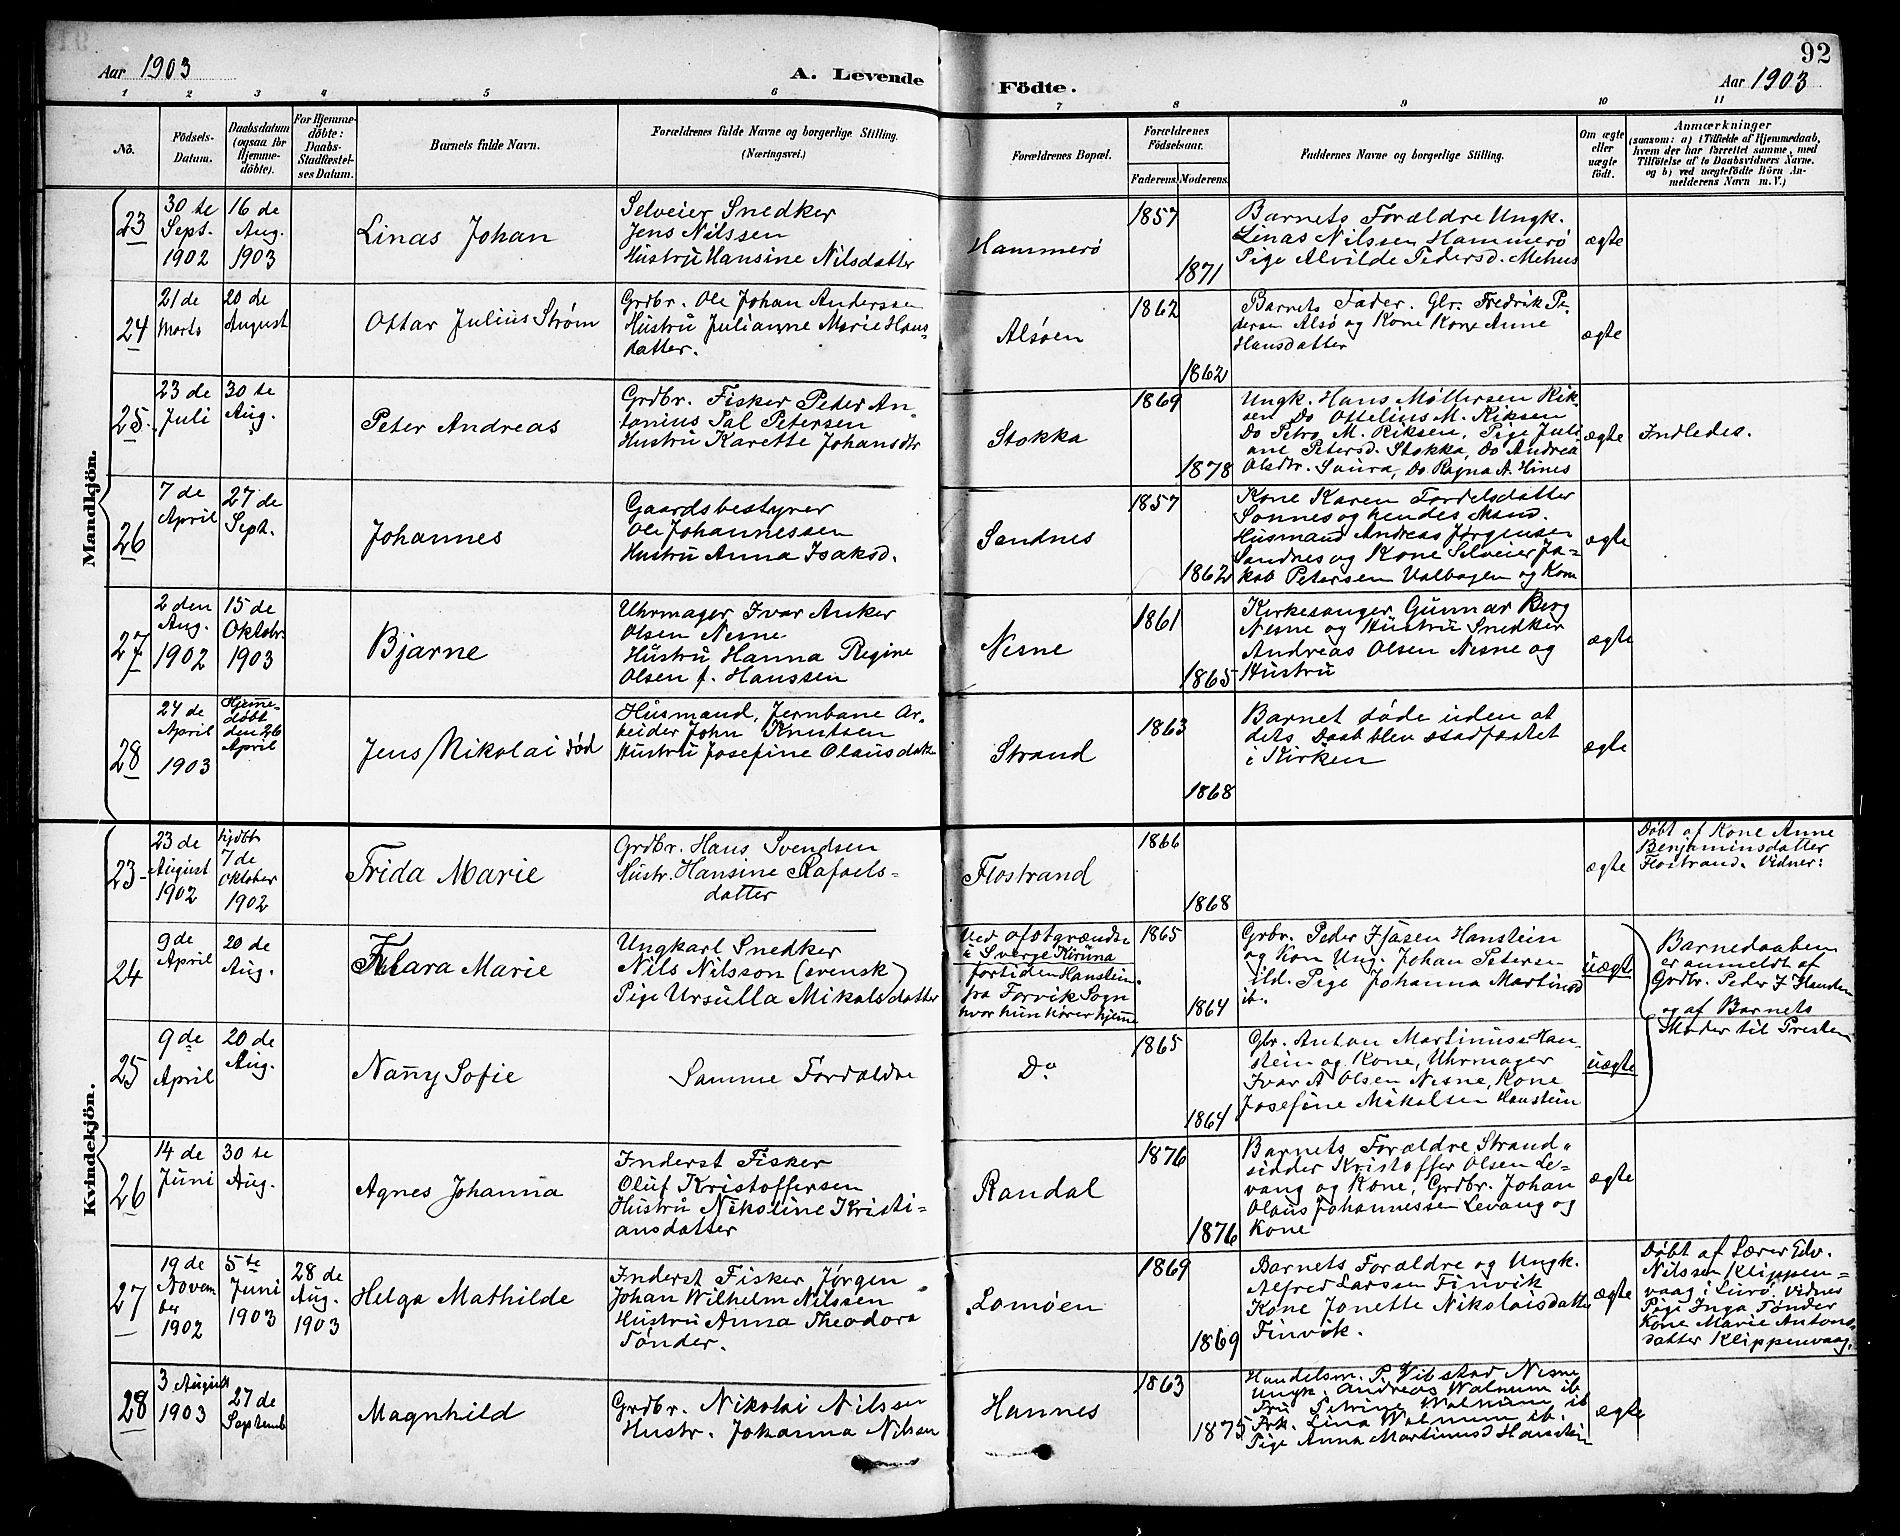 92
Aar 1903
A. Levende
Födte.
Aar 1903
1 2 3 4 5 6 7 8 9 10 11
No.
Födsels-
Datum.
Daabsdatum
(ogsaa for
Hjemme-
döbte).
For Hjemme-
döbte:
Daabs-
Stadfæstel-
ses Datum.
Barnets fulde Navn.
Forældrenes fulde Navne og borgerlige Stilling.
(Næringsvei.)
Forældrenes Bopæl.
Forældrenes
Födselsaar.
Faderens. Moderens.
Faddernes Navne og borgerlige Stilling.
Om ægte
eller
uægte
födt.
Anmærkninger
(saasom: a) i Tilfælde af Hjemmedaab,
hvem der har forrettet samme, med
Tilföielse af to Daabsvidners Navne.
og b) ved uægtefödte Börn An-
melderens Navn m. V.)
Mandkjön.
23
30 te
Sept.
1902
16 de
Aug.
1903
Linas Johan
Selveier Snedker
Jens Nilssen
Hustru Hansine Nilsdatter
Hammerø
1857
1871
Barnets Forældre Ungk.
Linas Nilssen Hammerø
Pige Alvilde Pedersd. Mehus
ægte
24
21 de
Marts
20 de
August
Ottar Julius Strøm
Grdbr. Ole Johan Anderssen
Hustru Julianne Marie Hans
datter.
Alsøen
1862
1862
Barnets Fader. Glr. Fredrik Pe-
dersen Alsø og Kone Kone Anne
Hansdatter
ægte
25.
23 de
Juli
30 te
Aug.
Peter Andreas
Grdbr. Fisker Peder An-
tonius Sal Petersen
Hustru Karette Johansdtr
Stokka
1869
1878
Ungk. Hans Møllersen Rik-
sen Do Ottelius M. Riksen
Do Petro M. Riksen, Pige Juli
ane Petersd. Stokka, Do Andrea
Olsdtr. Saura, Do Ragna A. Hines
ægte
Indledes.
26
7 de
April
27 de
Sept.
Johannes
Gaardsbestyrer
Ole Johannessen
Hustru Anna Isaksd.
Sandnes
1857
1862
Kone Karen Fordelsdatter
Sonnes og hendes Mand.
Husmand Andreas Jørgensen
Sandnes og Kone Selveier Ja-
kob Petersen Valbogen og Kone
ægte
27
2 den
Aug.
1902
15 de
Oktobr.
1903
Bjarne
Uhrmager Ivar Anker
Olsen Nesne
Hustru Hanna Regine
Olsen f. Hanssen
Nesne
1861
1865
Kirkesanger Gunnar Berg
Nesne og Hustru Snedker
Andreas Olsen Nesne og
Hustru
ægte
28
24 de
April
1903
Hjemme-
døbt
den 26
April
Jens Nikolai død
Husmand, Jernbane Ar-
beider John Knutsen
Hustru Josefine Olausdatt
Strand
1863
1868
Barnet døde uden at
dets Daab blev stadfæstet
i Kirken
ægte
Kvindekjön.
23
23 de
August
1902
hjdbt
7 de
Oktober
1902
Frida Marie
Grdbr. Hans Svendsen
Hustr. Hansine Rafaels-
datter
Flostrand
1866
1868
ægte
Døbt af Kone Anne
Benjaminsdatter
Flostrand. Vidner:
24
9 de
April
20 de
Aug.
Klara Marie
Ungkarl Snedker
Nils Nilsson (svensk)
Pige Ursulla Mikalsdatter
Ved ofotgrændse
i Sverge Kiruna
fortiden Hanstein.
fra Forvik Sogn
hvor hun hører hjem̄e
1865
1864
Grbr. Peder Hanstein
og Kon Ung. Johan Petersen
ild. Pige Johanna Martinsd
ib.
uægte
Barnedaaben
er anmeldt af
Grdbr. Peder J Hanstein
og af Barnets
Moder til Presten
25
9 de
April
20 de
Aug.
Nan̄y Sofie
Samme Forældre
Do
1865
1864
Gbr. Anton Martinusen Han-
stein og Kone, Uhrmager
Ivar A Olsen Nesne, Kone
Josefine Mikalsen Hanstein
uægte
26
14 de
Juni
30 te
Aug.
Agnes Johanna
Inderst Fisker
Oluf Kristoffersen
Hustru Nikoline Kristi-
ansdatter
Randal
1876
1876
Barnets Forældre Strand-
sidder Kristoffer Olsen Le-
vang og Kone, Grdbr. Johan
Olaus Johannessen Levang og
Kone
ægte
27
19 de
Novem
ber
1902
5 te
Juni
1903
28 de
Aug.
1903
Helga Mathilde
Inderst Fisker Jørgen
Johan Wilhelm Nilssen
Hustru Anna Theodora
Tønder.
Lamøen
1869
1869
Barnets Forældre og Ungk.
Alfred Larssen Finvik
Kone Jonette Nikolaisdatte
Finvik.
ægte
Døbt af Lærer Edv.
Nilssen Klippen-
vaag i Lurø. Vidner
Pige Inga Tønder
Kone Marie Antons-
datter Klippenvaag.
28
3 August
1903
27 de
Septemb
Magnhild
Grdbr. Nikolai Nilssen
Hustr. Johanna Nilsen
Hannes
1863
1875
Handelsm. P. Vibstad Nesne
Ungk. Andreas Walnum ib.
Fru Petrine Walnum ib
Frk. Lina Walnum ib.
Pige Anna Martinusd Hanstein
ægte